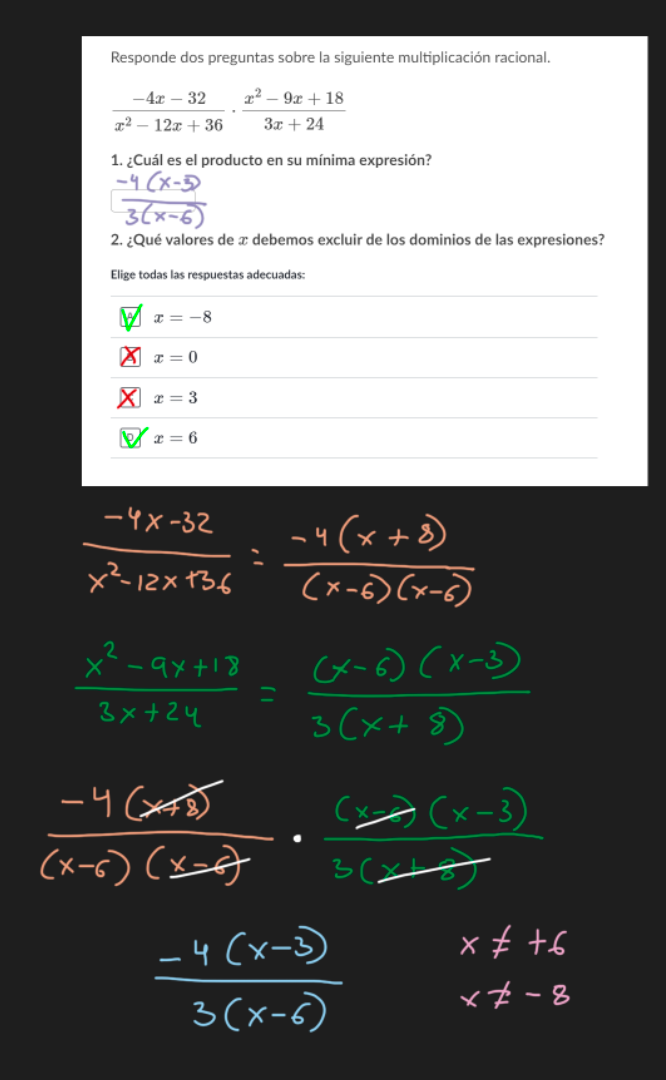 Responde dos preguntas sobre la siguiente multiplicación racional.
(-4x - 32)/(x² - 12x + 36) · (x² - 9x + 18)/(3x + 24)
1. ¿Cuál es el producto en su mínima expresión?
-4(x-3)/3(x-6)
2. ¿Qué valores de x debemos excluir de los dominios de las expresiones?
Elige todas las respuestas adecuadas:
x = -8
x = 0
x = 3
x = 6
(-4x-32)/(x²-12x+36) = -4(x+8)/(x-6)(x-6)
(x²-9x+18)/(3x+24) = (x-6)(x-3)/3(x+8)
-4(x+8)/(x-6)(x-6) · (x-6)(x-3)/3(x+8)
-4(x-3)/3(x-6)
x ≠ +6
x ≠ -8